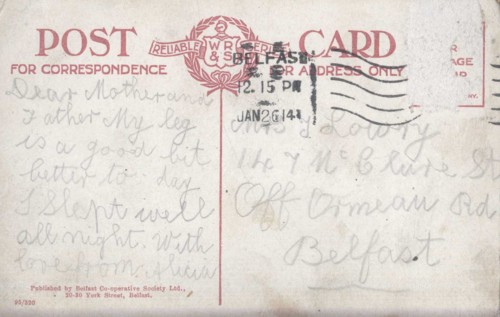 POST CARD
RELIABLE W R & S SERIES
FOR CORRESPONDENCE
FOR ADDRESS ONLY
BELFAST
12.15 PM
JAN 26 14
Dear Mother and
Father My leg
is a good bit
better to day
I Slept well
all night. With
love from Alicia
Mrs J Lowry
147 McClure St
Off Ormeau Rd
Belfast
Published by Belfast Co-operative Society Ltd.,
20-30 York Street, Belfast.